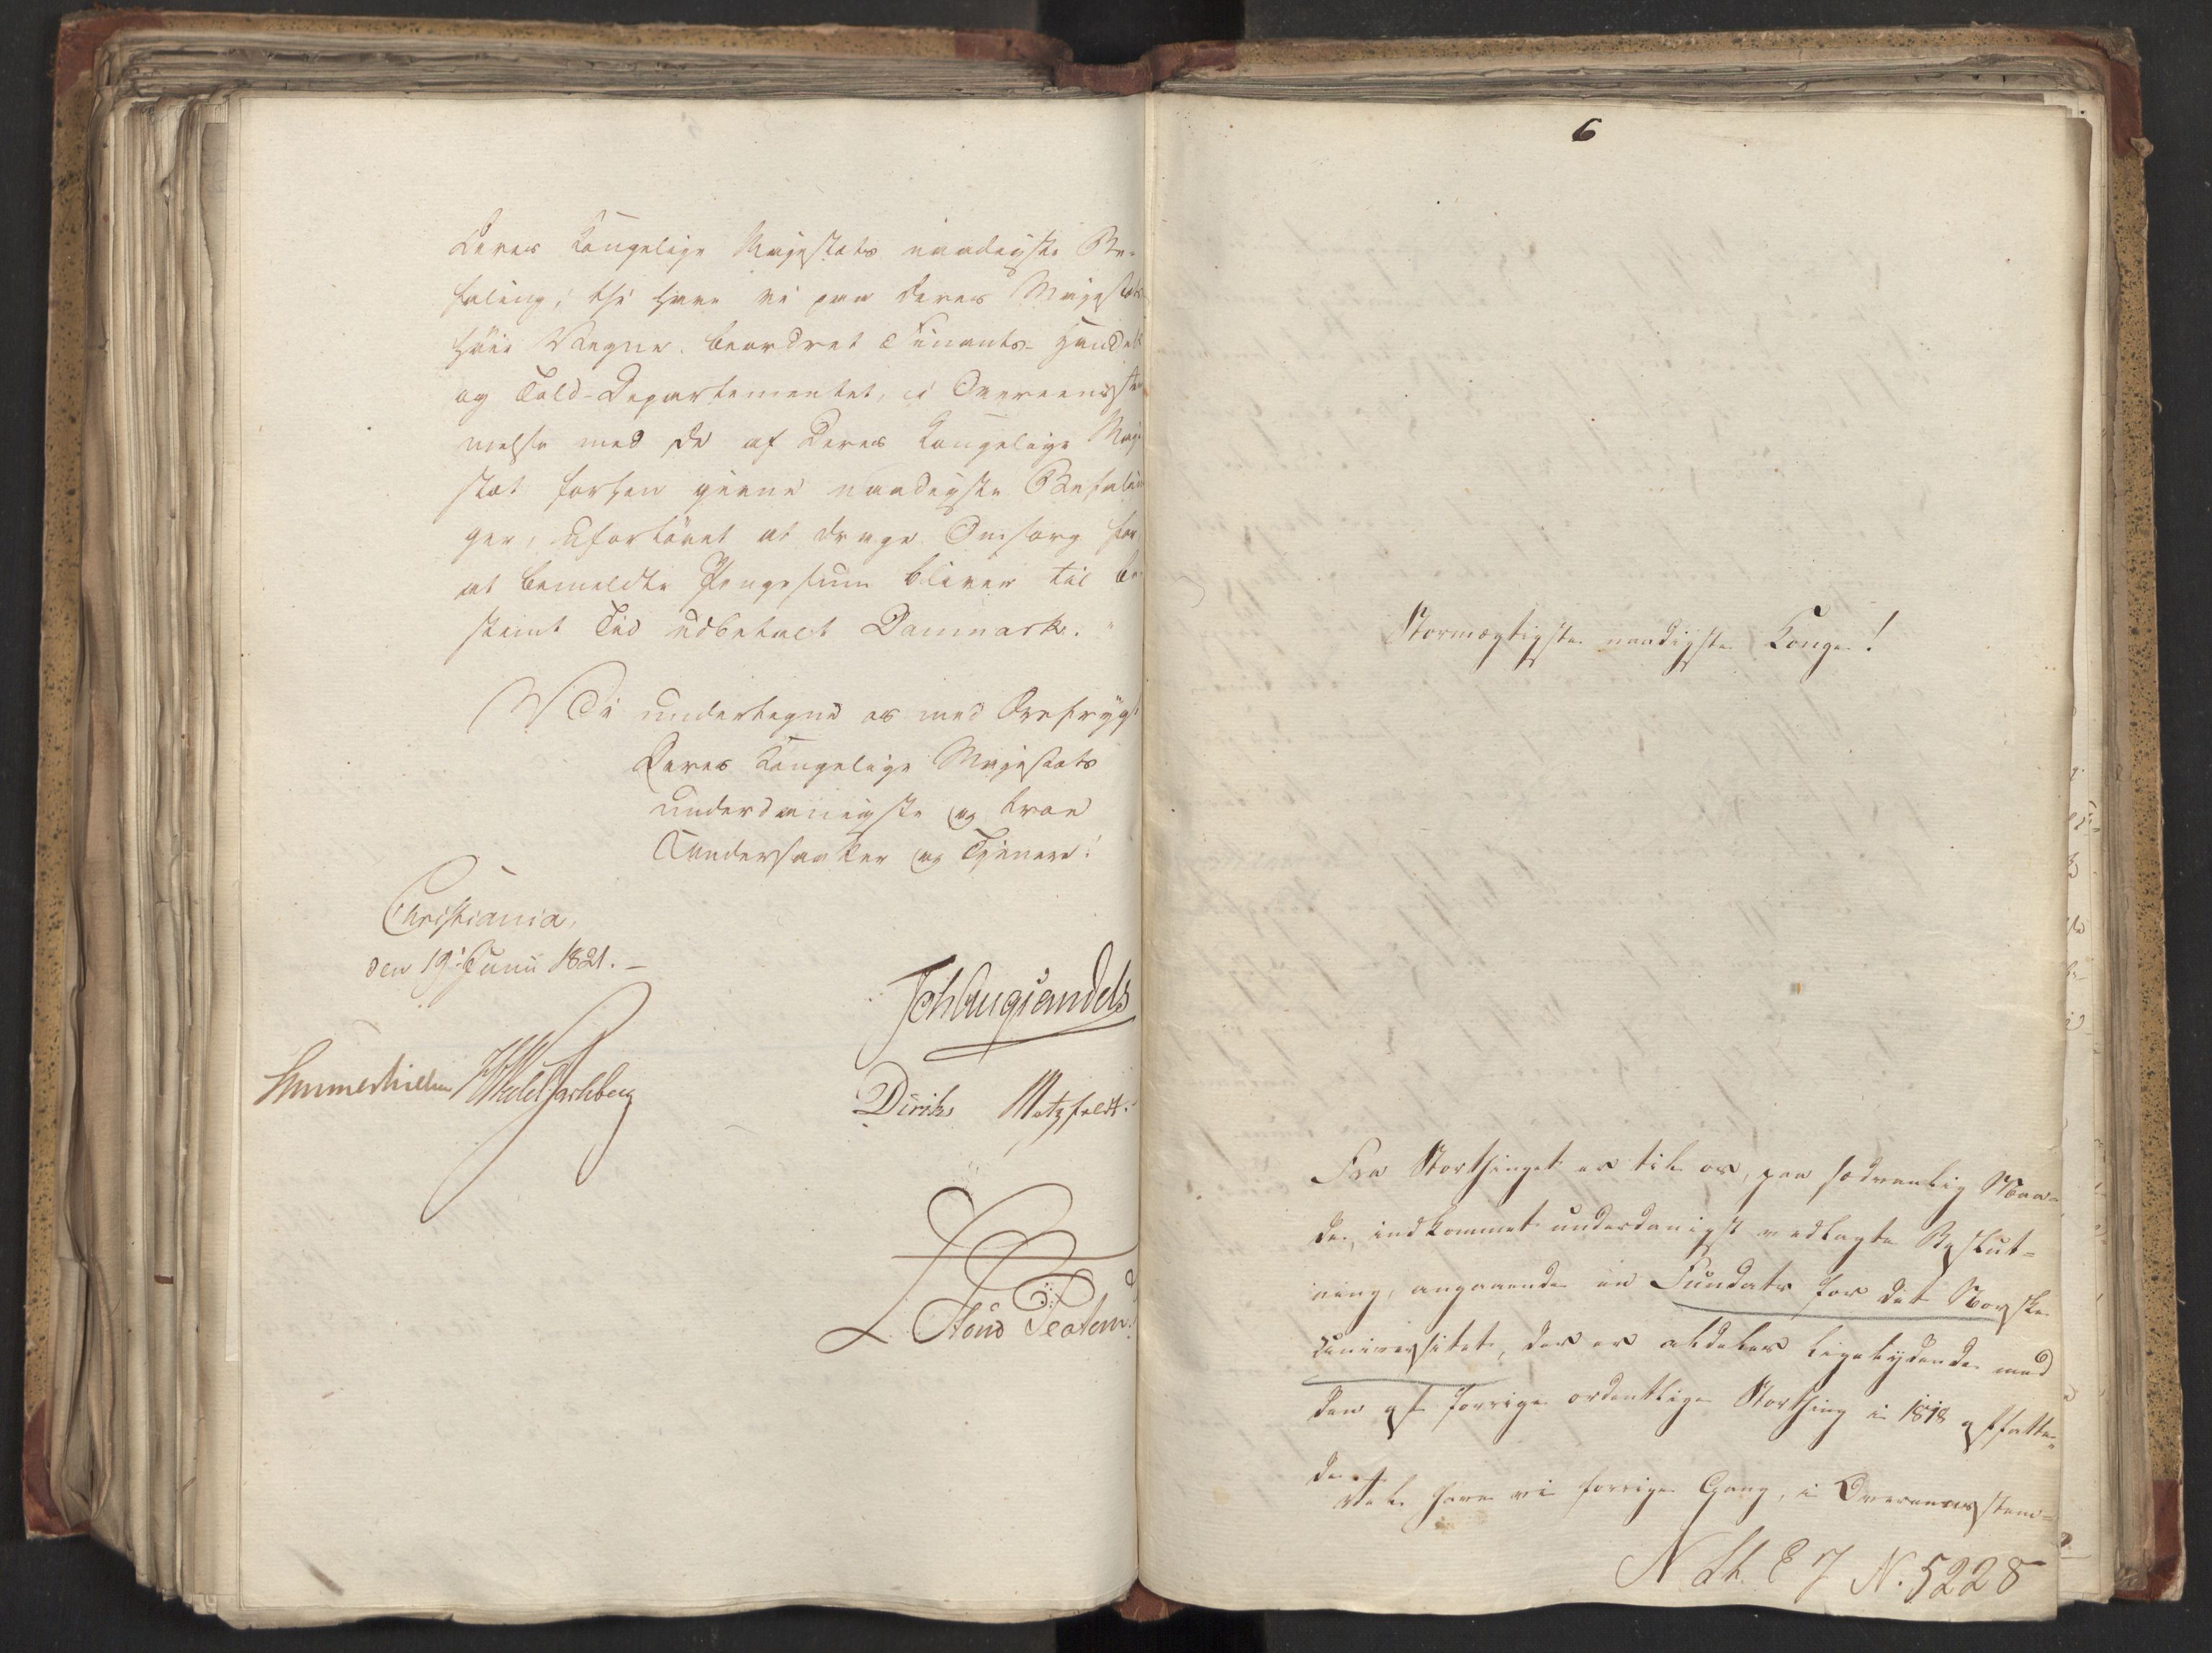 Deres Kongelige Majestæts naadigste Be-
faling; thi have vi paa Deres Majestæts
høie Vegne beordret Finants- Handels
og Told-Departementet, i Overeensstem
melse med de af Deres Kongelige Maje
stæt forhen givne naadigste Befalin
ger, ufortøvet at drage Omsorg for
at bemeldte Pengesum bliver til be
stemt Tid udbetalt Danmark.
Vi undertegne os med Ærefrygt
Deres Kongelige Majestæts
underdanigste og troe
Undersaatter og Tjenere!
Christiania,
den 19de Junii 1821.-
Joh Aug Sandels
Sommerhielm HWedel Jarlsberg
Diriks Motzfeldt.
6
Stormægtigste naadigste Konge!
Fra Storthinget er til os, paa sædvanlig Maa-
de, indkommet underdanigst vedlagte Beslut-
ning, angaaende en Fundats for det Norske
Universitet, der er aldeles ligelydende med
den af forrige ordentlige Storthing i 1818 affatte-
de.
Vel have vi forrige Gang, i Overeensstem-
N. 5228